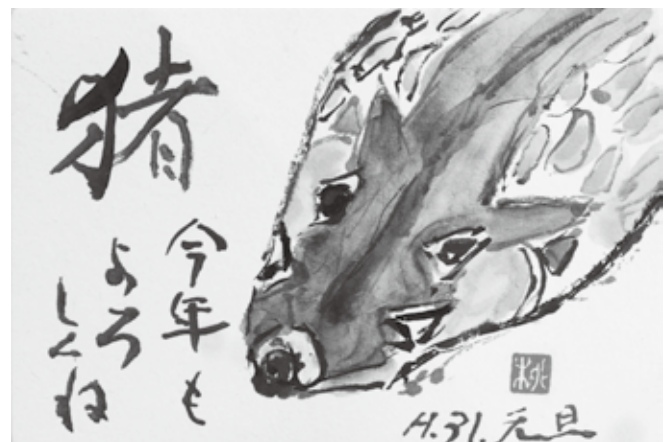 猪
今年も
よろ
しくね
H.31.元旦